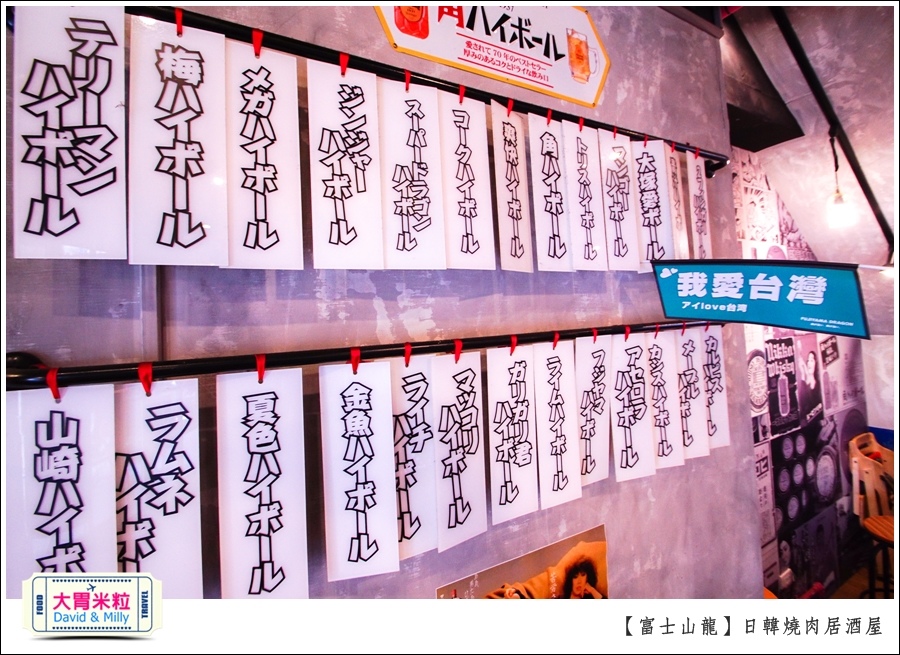 角ハイボール
愛されて70年のベストセラー
厚みのあるコクとドライな飲み口
テリーマンハイボール
梅ハイボール
メガハイボール
ジンジャーハイボール
スーパードラゴンハイボール
コークハイボール
角ハイボール
トリスハイボール
マンゴーハイボール
大塚愛ボール
我愛台灣
アイlove台湾
FUJIYAMA DRAGON
山崎ハイボ
ラムネハイボ
夏色ハイボール
金魚ハイボール
ライチハイボール
マッコリハイボール
ガリガリ君ハイボール
ライムハイボール
フジヤマハイボール
アセロラハイボール
カシスハイボール
カルピス
Nikka Whisky
FOOD
大胃米粒
David & Milly
TRAVEL
【富士山龍】日韓燒肉居酒屋